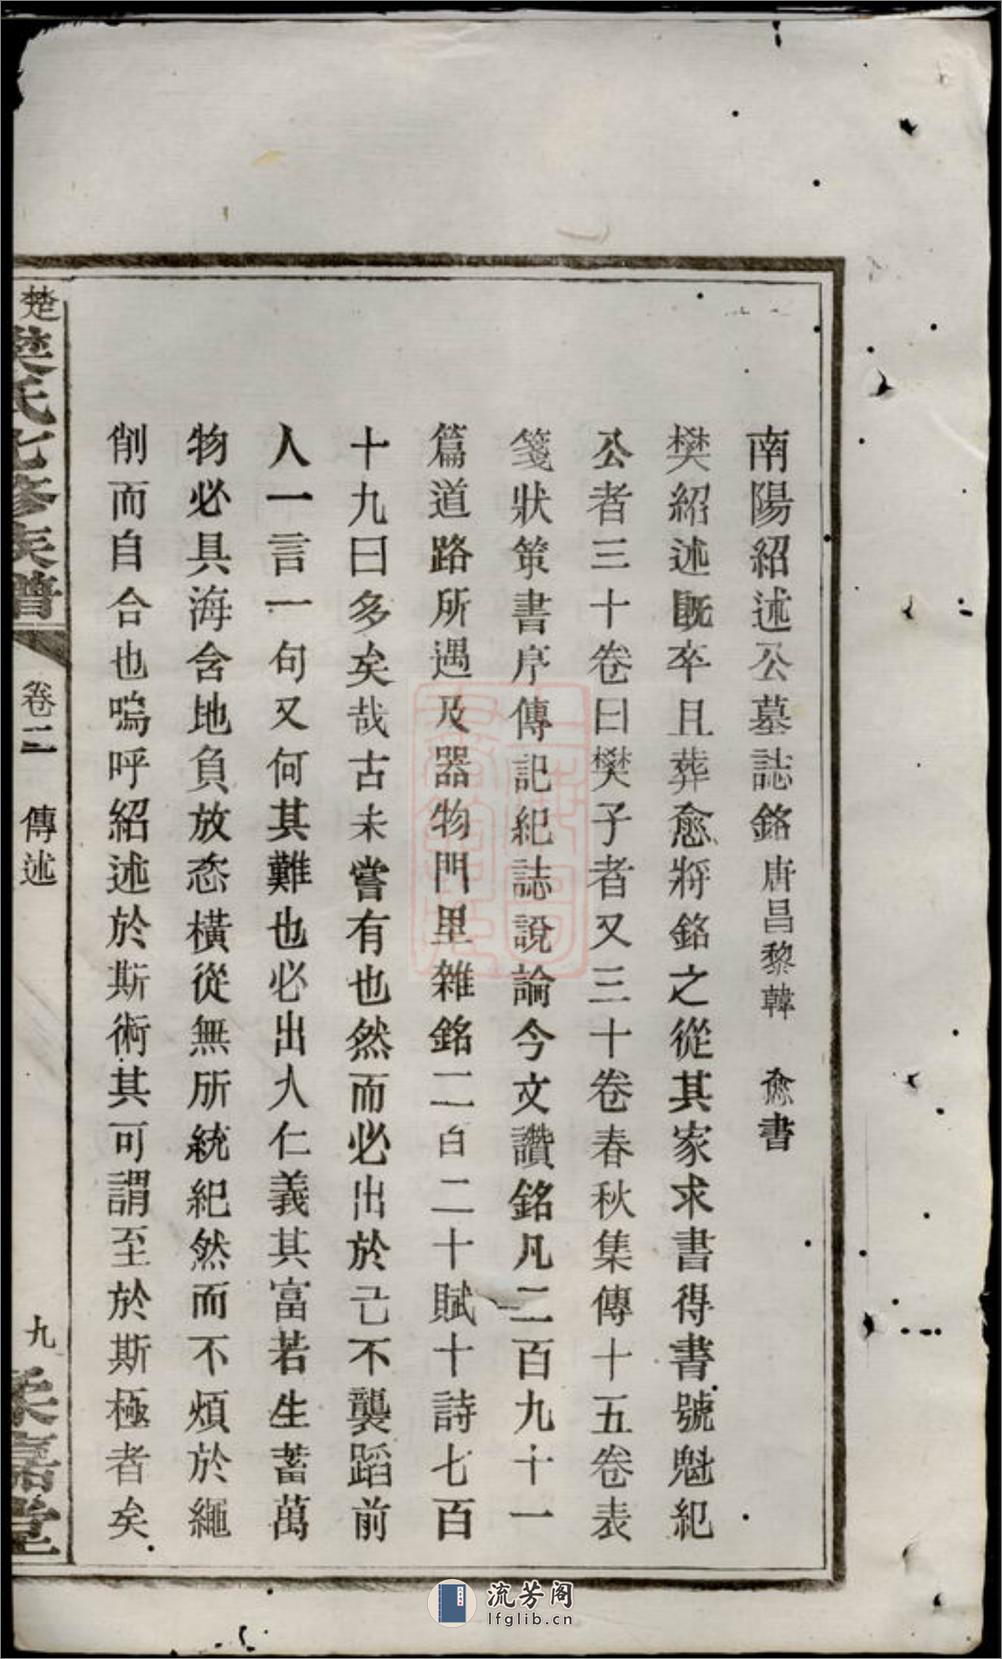 南陽紹述公墓誌銘 唐昌黎韓 愈書
樊紹述既卒且葬愈將銘之從其家求書得書號魁紀
公者三十卷曰樊子者又三十卷春秋集傳十五卷表
箋狀策書序傳記紀誌說論今文讚銘凡二百九十一
篇道路所遇及器物門里雜銘二百二十賦十詩七百
十九曰多矣哉古未嘗有也然而必出於己不襲蹈前
人一言一句又何其難也必出入仁義其富若生蓄萬
物必具海含地負放恣橫從無所統紀然而不煩於繩
削而自合也嗚呼紹述於斯術其可謂至於斯極者矣
楚樊氏七修族譜 卷二 傳述 九
流芳阁
lfglib.cn